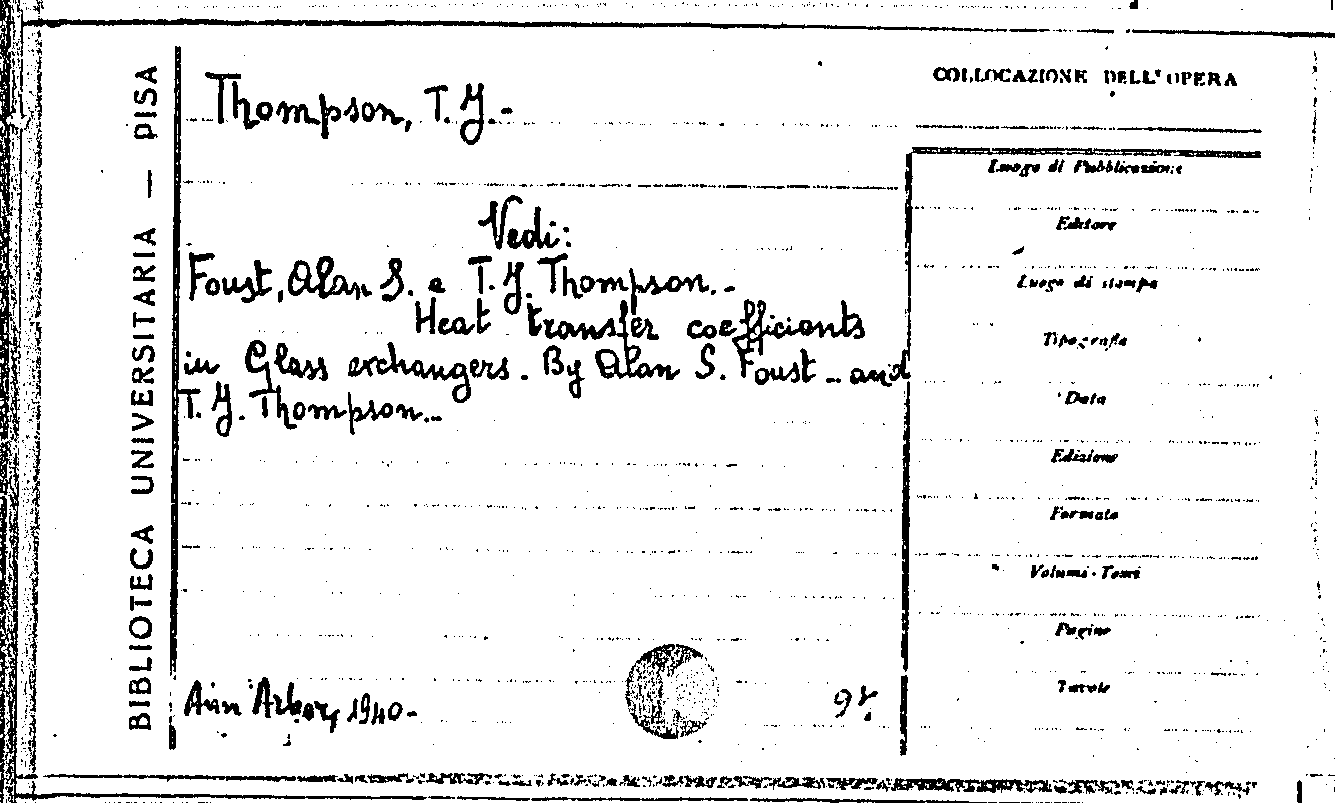 BIBLIOTECA UNIVERSITARIA — PISA
Thompson, T. J.-
Vedi:
Foust, Alan S. e T. J. Thompson.-
Heat transfer coefficients
in Glass exchangers. By Alan S. Foust .. and
T. J. Thompson..
Ann Arbor, 1940-
COLLOCAZIONE DELL'OPERA
Luogo di Pubblicazione
Editore
Luogo di stampa
Tipografia
Data
Edizione
Formato
Volumi-Tomi
Pagine
Tavole